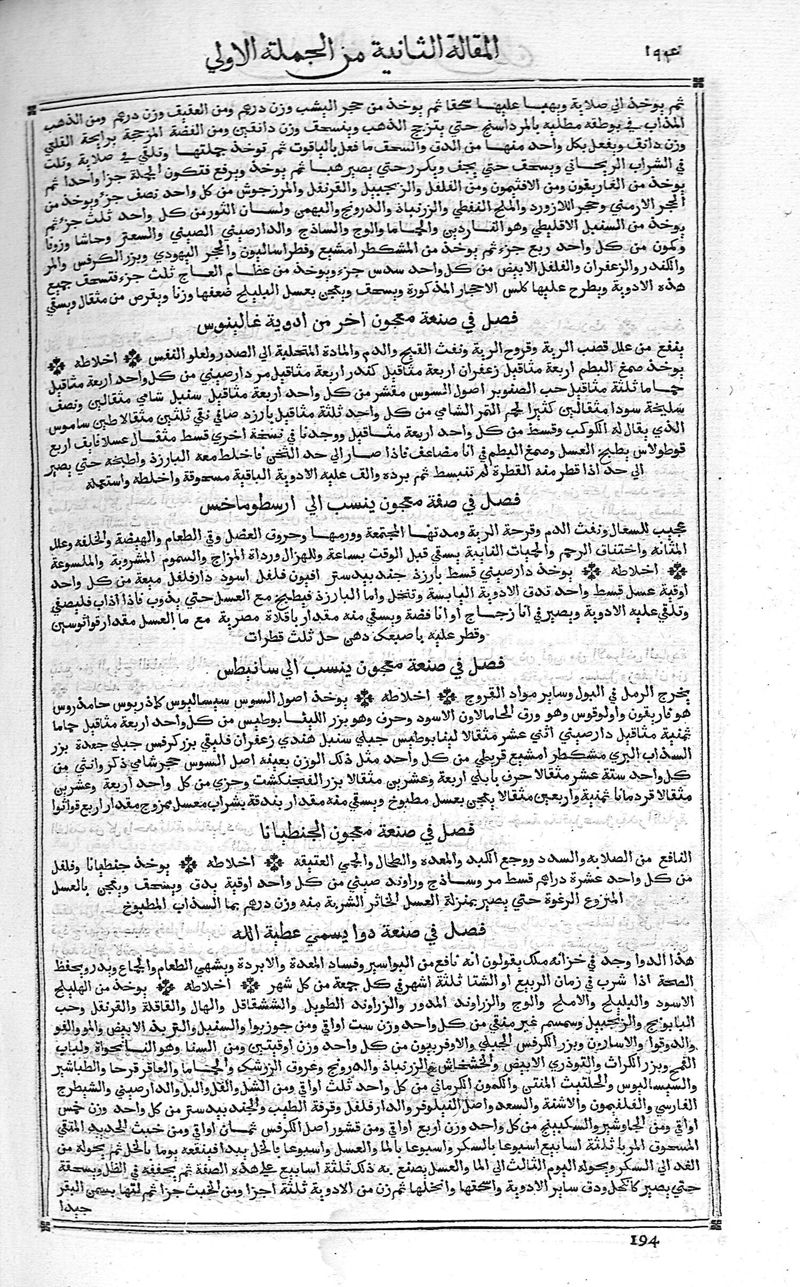 المقالة الثانية من الجملة الاولي
١٩٤
ثم يوخذ الي صلاية ويهيا عليها سحقا ثم يوخذ من حجر اليشب وزن درهم ومن العقيق وزن درهم ومن الذهب
المذاب في بوطقه مطليه بالمرداسنج حتي يتزج الذهب وينسحف وزن دانقين ومن الفضة المزججة برايحة القلعي
وزن دانق ويفعل بكل واحد منها من الدق والسحف ما فعل بالياقوت ثم توخذ جملتها وتلقي في صلاية وتلت
في الشراب الريحاني ويسحف حتي يجف ويكرر حتي يصير هبا ثم يوخذ ويرفع فتكون الجملة جزا واحدا ثم
يوخذ من الغاريقون ومن الافتيمون ومن الفلفل والزنجبيل والقرنفل والمرزجوش من كل واحد نصف جزء ويوخذ من
الحجر الارمني وحجر اللازورد والملح النفطي والزرنباذ والدرونج والبهمن ولسان الثور من كل واحد ثلث جزء ثم
يوخذ من السنبل الاقليطي وهو الناردين والحماما والوج والساذج والدارصيني الصيني والسعتر وحاشا وزوفا
وكمون من كل واحد ربع جزء ثم يوخذ من المشكطرامشيع وفطراساليون والحجر اليهودي وبزر الكرفس والمر
والكندر والزعفران والفلفل الابيض من كل واحد سدس جزء ويوخذ من عظام العاج ثلث جزء فتسحف جميع
هذه الادوية ويطرح عليها كلس الاحجار المذكورة ويسحف ويعجن بعسل البليلج ضعفها وزنا ويقرص من مثقال ويسقي
فصل في صنعة معجون اخر من ادوية غالينوس
ينفع من علل قصب الرية وقروح الرية ونفث القيح والدم والمادة المتحلبة الي الصدر ولعلو النفس اخلاطه
يوخذ صمغ البطم اربعة مثاقيل زعفران اربعة مثاقيل كندر اربعة مثاقيل مر دارصيني من كل واحد اربعة مثاقيل
حماما ثلثة مثاقيل حب الصنوبر اصول السوس مقشر من كل واحد اربعة مثاقيل سنبل شامي مثقالين ونصف
سليخة سودا مثقالين كثيرا لحم التمر الشامي من كل واحد ثلثة مثاقيل بارزد صافي نقي ثلثين مثقالا طين ساموس
الذي يقال له الكوكب وقسط من كل واحد اربعة مثاقيل ووجدنا في نسخة اخري قسط مثقال عسلا فايف اربع
قوطولاس يطبخ العسل وصمغ البطم في انا مضاعف فاذا صار الي حد الثخن فاخلط معه البارزد واطبخه حتي يصير
الي حد اذا قطر منه القطرة لم تنبسط ثم برده والف عليه الادوية الباقية مسحوقة واخلطه واستعمله
فصل في صفة معجون ينسب الي ارسطوماخس
عجيب للسعال ونفث الدم وقرحة الرية ومدتها المجتمعة وورمها وحروق العضل وقي الطعام والهيضة والخلفه وعلل
المثانه واختناق الرحم والحميات النايبة يسقي قبل الوقت بساعة وللهزال ورداة المزاج والسموم المشروبة والملسوعة
اخلاطه يوخذ دارصيني قسط بارزد جندبيدستر افيون فلفل اسود دارفلفل ميعة من كل واحد
اوقية عسل قسط واحد تدق الادوية اليابسة وتنخل واما البارزد فيطبخ مع العسل حتي يذوب فاذا اذاب فليصفي
وتلقي عليه الادوية ويصير في انا زجاج او انا فضة ويسقي منه مقدار باقلاة مصرية مع ما العسل مقدار قواثوسين
وقطر عليه باصبعك دهن حل ثلث قطرات
فصل في صنعة معجون ينسب الي سانيطس
يخرج الرمل في البول وساير مواد القروح اخلاطه يوخذ اصول السوس سيساليوس كاذريوس حامدروس
هو فاريقون واولوقوس وهو ورق الخامالاون الاسود وحرف وهو بزر الليثابوطيس من كل واحد اربعة مثاقيل حماما
ثمنية مثاقيل دارصيني اثني عشر مثقالا لينابوطيس جبلي سنبل هندي زعفران فليقي بزر كرفس جبلي جعدة بزر
السذاب البري مشكطرامشيع قريطي من كل واحد مثل ذلك الوزن بعينه اصل السوس حجر شامي ذكر وانثي من
كل واحد ستة عشر مثقالا حرف بابلي اربعة وعشرين مثقالا بزر الفنجنكشت وحزي من كل واحد اربعة وعشرين
مثقالا قردمانا ثمنية واربعين مثقالا يعجن بعسل مطبوخ ويسقي منه مقدار بندقة بشراب معسل ممزوج مقدار اربع قواثوا
فصل في صنعة معجون الجنطيانا
النافع من الصلابه والسدد ووجع الكبد والمعده والطحال والحمي العتيقه اخلاطه يوخذ جنطيانا وفلفل
من كل واحد عشرة دراهم قسط مر وساذج وراوند صيني من كل واحد اوقية يدق ويسحف ويعجن بالعسل
المنزوع الرغوة حتي يصير بمنزلة العسل الخاثر الشربة منه وزن درهم بما السذاب المطبوخ
فصل في صنعة دوا يسمي عطية الله
هذا الدوا وجد في خزانه ملك يقولون انه نافع من البواسير وفساد المعدة والابردة ويشهي الطعام والجماع ويدر ويحفظ
الصحة اذا شرب في زمان الربيع او الشتا ثلثة اشهر في كل جمعة من كل شهر اخلاطه يوخذ من الهليلج
الاسود والبليلج والاملج والوج والزراوند المدور والزراوند الطويل والششقاقل والهال والقاقلة والقرنفل وحب
البابونج والزنجبيل وسمسم غير منقي من كل واحد وزن ست اواقي ومن جوزبوا والسنبل والتربد الابيض والمو والفو
والدوقوا والاسارون وبزر الكرفس الجبلي والاوفربيون من كل واحد وزن اوقيتين ومن السنا وهو النانخواة ولباب
القمح وبزر الكراث والتوذري الابيض والخشخاش والزرنباذ والدرونج وعروق الزرشك والحماما والعاقرقرحا والطباشير
والسيساليوس والحلتيث المنتن والكمون الكرماني من كل واحد ثلث اواقي ومن الشل والفل والبل والدارصيني والشيطرج
الفارسي والفلفمون والاشنة والسعد واصل النيلوفر والدارفلفل وقرفة الطيب والجندبيدستر من كل واحد وزن خمس
اواقي ومن الجاوشير والسكبينج من كل واحد وزن اربع اواقي ومن قشور اصل الكرفس ثمان اواقي ومن خبث الحديد المنقي
المسحوق المربا ثلثة اسابيع اسبوعا بالسكر واسبوعا بالما والعسل واسبوعا بالخل يبدا فينقعه يوما بالخل ثم يحوله من
الغد الي السكر ويحوله اليوم الثالث الي الما والعسل يصنع به ذلك ثلثة اسابيع علي هذه الصفة ثم يجففه في الظل ويسحقه
حتي يصير كالكحل ودق ساير الادوية واسحقها وانخلها ثم زن من الادوية ثلثة اجزا ومن الخبث جزا ثم لتها بسمن البقر
جيدا
194